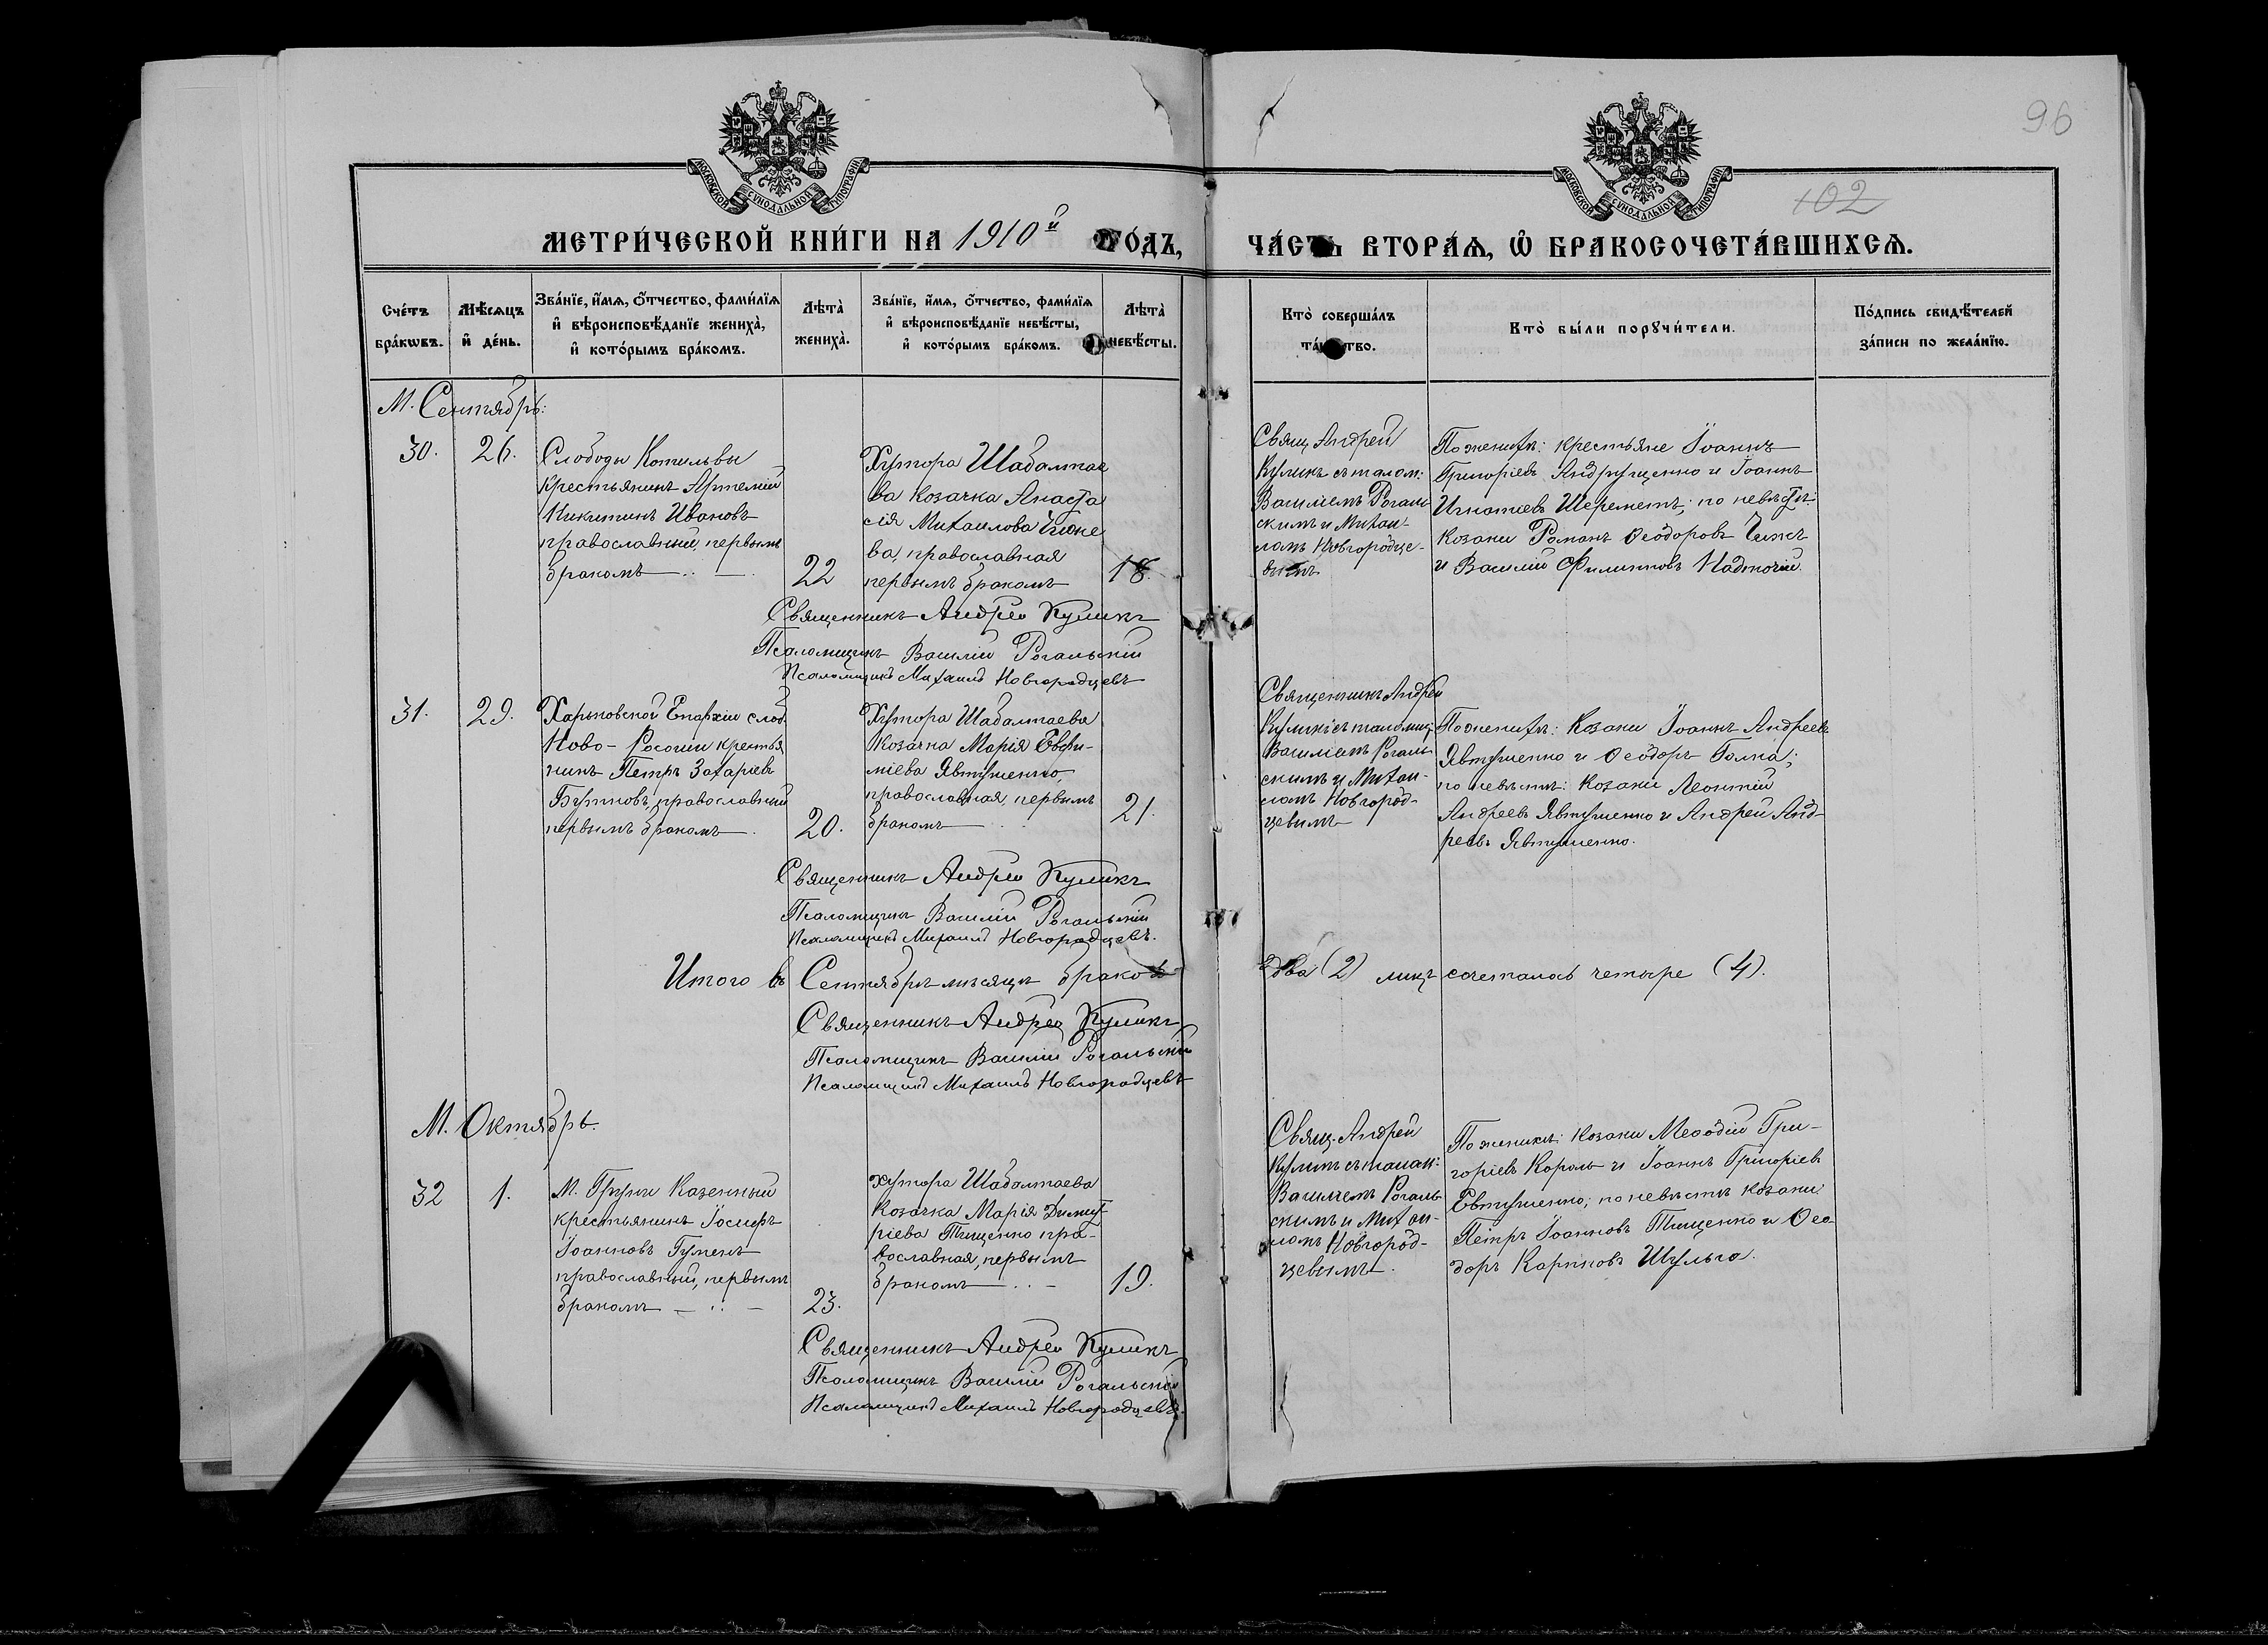 96
102
МОСКОВСКОЙ СѴНОДАЛЬНОЙ ТИПОГРАФІИ
МОСКОВСКОЙ СѴНОДАЛЬНОЙ ТИПОГРАФІИ
МЕТРИ́ЧЕСКОЙ КНИ́ГИ НА 1910й ГО́ДЪ,
ЧА́СТЬ ВТОРА́Ѧ, Ѿ БРАКОСОЧЕТА́ВШИХСѦ.
Сче́тъ бра́кѡвъ.
Мѣ́сѧцъ и҆ де́нь.
Зва́нїе, и҆́мѧ, ѻ҆́тчество, фами́лїѧ
и҆ вѣроисповѣ́данїе жениха̀,
и҆ кото́рымъ бра́комъ.
Лѣта̀ жениха̀.
Зва́нїе, и҆́мѧ, ѻ҆́тчество, фами́лїѧ
и҆ вѣроисповѣ́данїе невѣ́сты,
и҆ кото́рымъ бра́комъ.
Лѣта̀ невѣ́сты.
Кто̀ соверша́лъ
та́инство.
Кто̀ бы́ли порꙋчи́тели.
По́дпись свидѣ́телей
за́писи по жела́нїю.
М. Сентябрь:
30.
26.
Слободы Котельвы
крестьянинъ Артемій
Никитинъ Ивановъ
православный, первымъ
бракомъ
22
Хутора Шабалтае
ва козачка Анаста
сія Михаилова Чиже
ва, православная
первымъ бракомъ
18.
Свящ Андрей
Куликъ съ псалом:
Василіемъ Рогаль
скимъ и Михаи-
ломъ Новгородце-
вымъ
По женихѣ: крестьяне Іоаннъ
Григоріевъ Андрущенко и Іоаннъ
Игнатіевъ Шереметъ; по невѣстѣ:
козаки Романъ Ѳеодоровъ Чижъ
и Василій Филипповъ Надточій.
Священникъ Андрей Куликъ
Псаломщикъ Василій Рогальскій
Псаломщикъ Михаилъ Новгородцевъ
31.
29.
Харьковской Епархіи слоб.
Ново-Рософи крестья
нинъ Петръ Захаріевъ
Бутковъ, православный
первымъ бракомъ
20.
Хутора Шабалтаева
Козачка Марія Евфи-
міева Явтушенко,
православная, первымъ
бракомъ
21.
Священникъ Андрей
Куликъ съ псаломщ:
Василіемъ Рогаль
скимъ и Михаи-
ломъ Новгород-
цевымъ
По женихѣ: Козаки Іоаннъ Андреевъ
Явтушенко и Ѳеодоръ Галка;
по невѣстѣ: козаки Леонтій
Андреевъ Явтушенко и Андрей Анд-
реевъ Явтушенко.
Священникъ Андрей Куликъ
Псаломщикъ Василій Рогальскій
Псаломщикъ Михаилъ Новгородцевъ.
Итого въ Сентябрѣ мѣсяцѣ браковъ два (2) лицъ сочеталось четыре (4).
Священникъ Андрей Куликъ
Псаломщикъ Василій Рогальскій
Псаломщикъ Михаилъ Новгородцевъ
М. Октябрь.
32
1.
М. Груни Казенный
крестьянинъ Іосифъ
Іоанновъ Гуменъ
православный, первымъ
бракомъ
23.
Хутора Шабалтаева
Козачка Марія Димит-
ріева Тищенко пра-
вославная, первымъ
бракомъ
19.
Свящ. Андрей
Куликъ съ псалом:
Василіемъ Рогаль
скимъ и Михаи-
ломъ Новгород-
цевымъ.
По женихѣ: козаки Меѳодій Гри-
горіевъ Король и Іоаннъ Григоріевъ
Евтушенко; по невѣстѣ козаки
Петръ Іоанновъ Тищенко и Ѳео-
доръ Карповъ Шульга.
Священникъ Андрей Куликъ
Псаломщикъ Василій Рогальскій
Псаломщикъ Михаилъ Новгородцевъ.